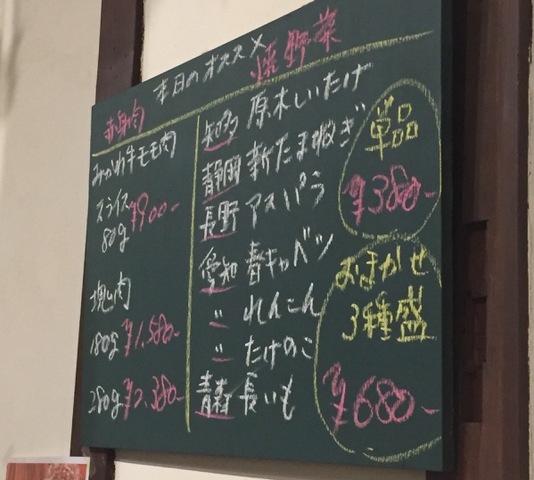 本日のオススメ
赤身肉
みかわ牛モモ肉
スライス
80g ¥900-
塊肉
180g ¥1.580-
280g ¥2.380-
焼野菜
知多 原木しいたけ
静岡 新たまねぎ
長野 アスパラ
愛知 春キャベツ
〃 れんこん
〃 たけのこ
青森 長いも
単品
¥380-
おまかせ
3種盛
¥680-